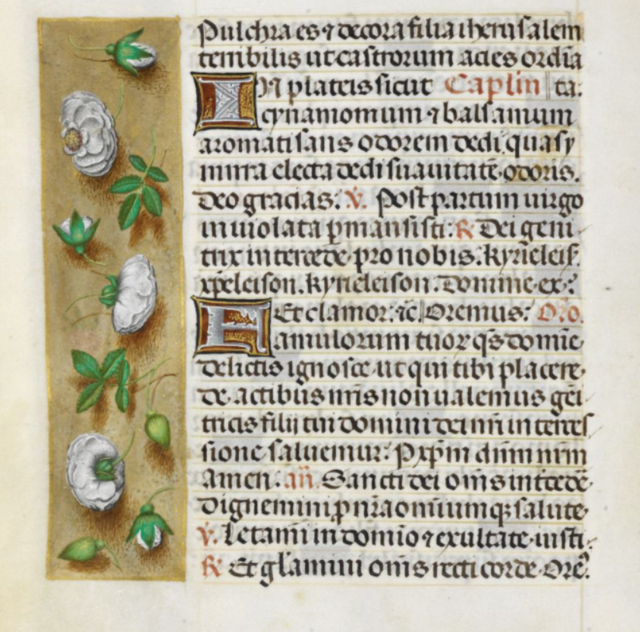 Pulchra es ⁊ decora filia iherusalem
terribilis ut castrorum acies ordīa
In plateis sicut Caplm ta.
cynamomum ⁊ balsamum
aromatisans odorem dedi. quasy
mirra electa dedi suauitatē odoris.
Deo gracias. v̄. Post partum uirgo
inuiolata ꝑmansisti. R̄ Dei geni
trix intercede pro nobis. kyrieleis.
xp̄eleison. kyrieleison. Domine ex.
Et clamor. ⁊c̄ Oremus. Or̄o.
Famulorum tuor̄ qs̄ domīe
delictis ignosce ut qui tibi placere
de actibus nr̄is non ualemus gēi
tricis filij tui domini dei nr̄i interces
sione saluemur. P xp̄m dn̄m nr̄m
amen. an̄. Sancti dei om̄s intcedē
dignemini ꝓ nr̄a omniumqꝫ salute
v̄. Letamī in domīo ⁊ exultate iusti.
R̄ Et gl̄amini om̄s recti corde. Orē.